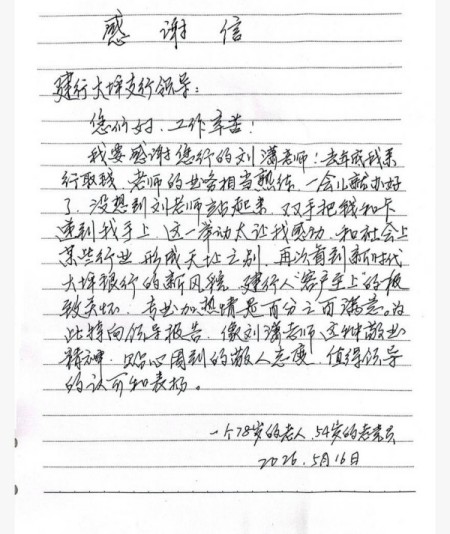 感谢信
建行大坪支行领导:
您们好,工作辛苦!
我要感谢您行的刘潇老师!去年底我来
行取钱,老师的业务相当熟练,一会儿就办好
了,没想到刘老师站起来,双手把钱和卡
递到我手上,这一举动太让我感动,和社会上
某些行业形成天址之别,再次看到新时代
大坪银行的新风貌,建行人"客户至上"的极
致关怀,专业加热情是百分之百满意。为
此特向领导报告,像刘潇老师这种敬业
精神,贴心周到的敬人态度,值得领导
的认可和表扬。
一个78岁的老人,54岁的老党员
2026.5月16日